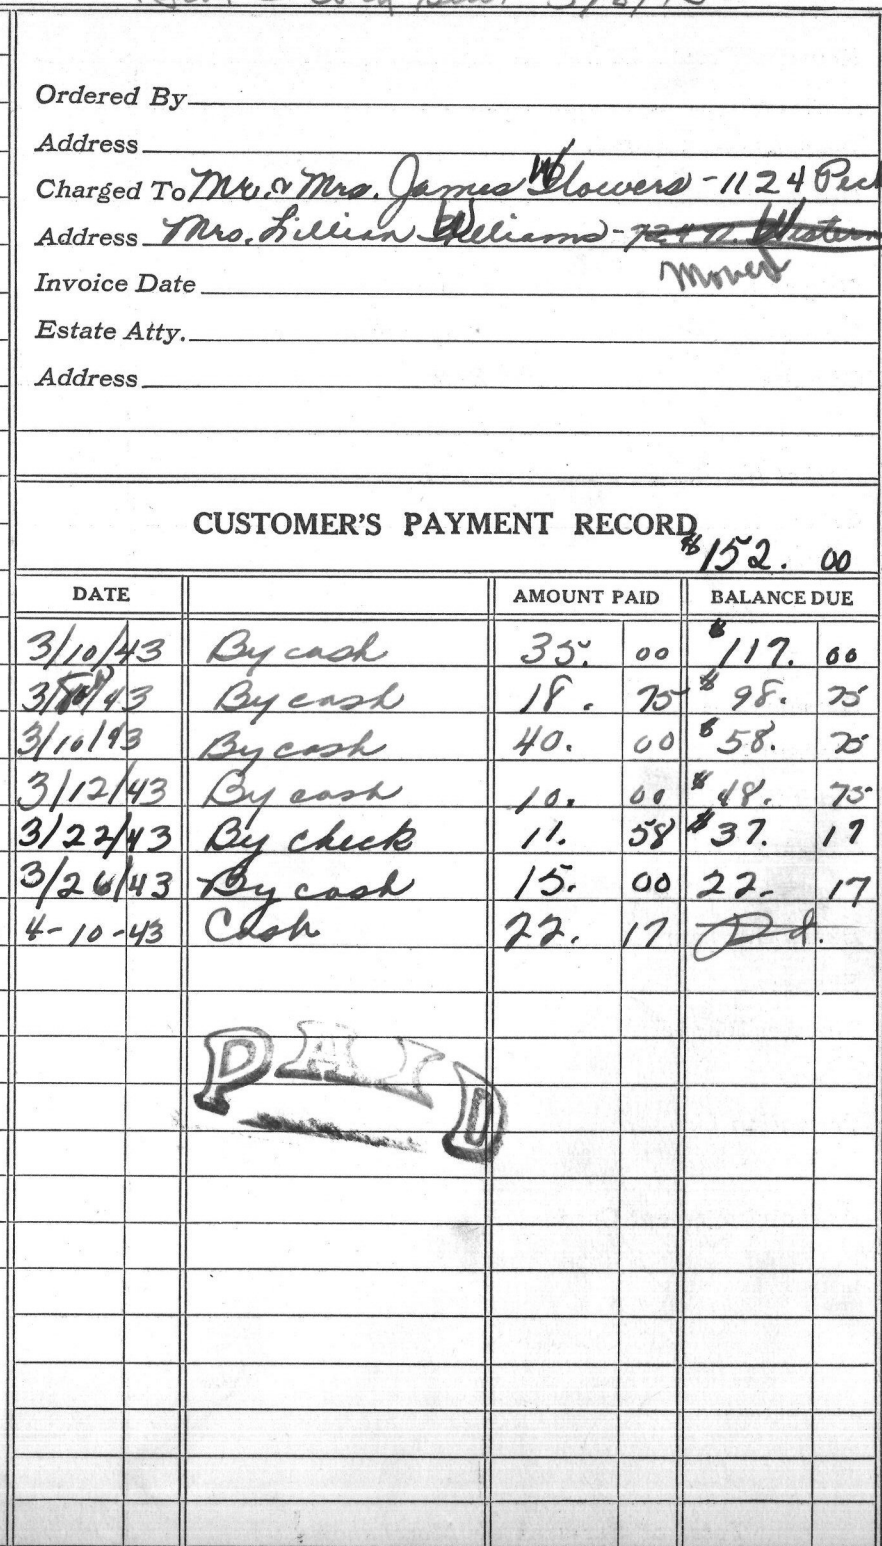 Ordered By
Address
Charged To Mr. & Mrs. James Flowers - 1124
Address Mrs. Lillian Williams - 724 N. Western
Moved
Invoice Date
Estate Atty.
Address
CUSTOMER'S PAYMENT RECORD
$152. 00
DATE AMOUNT PAID BALANCE DUE
3/10/43 By cash 35. 00 $117. 00
3/10/43 By cash 18. 75 $98. 75
3/10/43 By cash 40. 00 $58. 75
3/12/43 By cash 10. 00 $48. 75
3/22/43 By check 11. 58 $37. 17
3/26/43 By cash 15. 00 22. 17
4-10-43 Cash 22. 17 Pd.
PAID